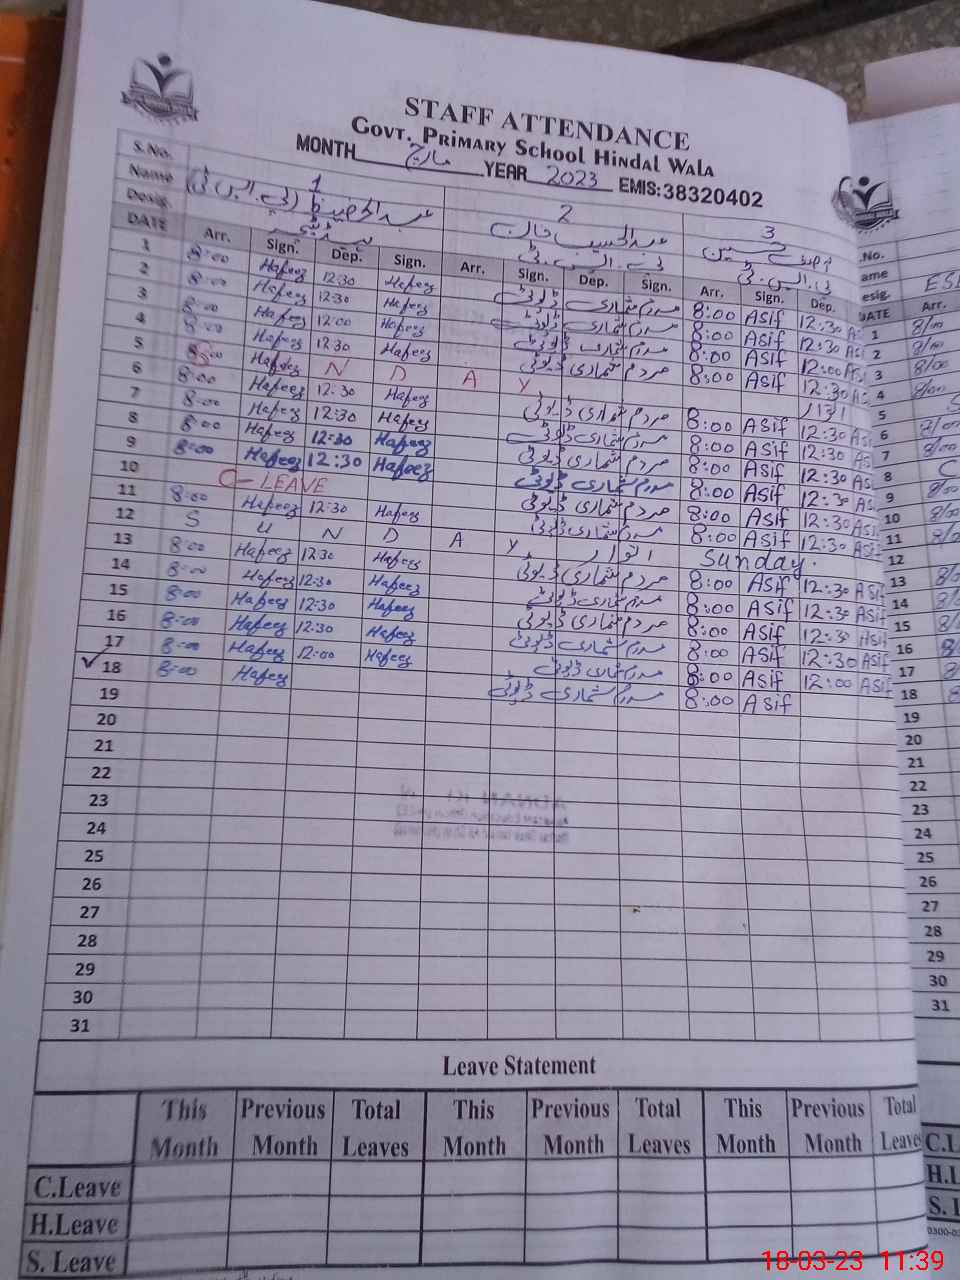 STAFF ATTENDANCE
GOVT. PRIMARY SCHOOL HINDAL WALA
MONTH مارچ YEAR 2023 EMIS:38320402
S.No. 1 2 3
Name عبدالحفیظ (پی۔ایس۔ٹی) عبدالحسیب خان
Desig. پی۔ایس۔ٹی پی۔ایس۔ٹی
DATE Arr. Sign. Dep. Sign. Arr. Sign. Dep. Sign. Arr. Sign. Dep.
1 8:00 Hafeez 12:30 Hafeez مردم شماری ڈیوٹی 8:00 Asif 12:30 As
2 8:00 Hafeez 12:30 Hafeez مردم شماری ڈیوٹی 8:00 Asif 12:30 As
3 8:00 Hafeez 12:00 Hafeez مردم شماری ڈیوٹی 8:00 Asif 12:00 As
4 8:00 Hafeez 12:30 Hafeez مردم شماری ڈیوٹی 8:00 Asif 12:30 As
5 S N D A Y اتوار
6 8:00 Hafeez 12:30 Hafeez مردم شماری ڈیوٹی 8:00 Asif 12:30 As
7 8:00 Hafeez 12:30 Hafeez مردم شماری ڈیوٹی 8:00 Asif 12:30 As
8 8:00 Hafeez 12:30 Hafeez مردم شماری ڈیوٹی 8:00 Asif 12:30 As
9 8:00 Hafeez 12:30 Hafeez مردم شماری ڈیوٹی 8:00 Asif 12:30 As
10 C-LEAVE مردم شماری ڈیوٹی 8:00 Asif 12:30 As
11 8:00 Hafeez 12:30 Hafeez مردم شماری ڈیوٹی 8:00 Asif 12:30 As
12 S U N D A Y اتوار Sunday.
13 8:00 Hafeez 12:30 Hafeez مردم شماری ڈیوٹی 8:00 Asif 12:30 Asif
14 8:00 Hafeez 12:30 Hafeez مردم شماری ڈیوٹی 8:00 Asif 12:30 Asif
15 8:00 Hafeez 12:30 Hafeez مردم شماری ڈیوٹی 8:00 Asif 12:30 Asif
16 8:00 Hafeez 12:30 Hafeez مردم شماری ڈیوٹی 8:00 Asif 12:30 Asif
17 8:00 Hafeez 12:00 Hafeez مردم شماری ڈیوٹی 8:00 Asif 12:00 Asif
18 8:00 Hafeez مردم شماری ڈیوٹی 8:00 Asif
19
20
21
22
23
24
25
26
27
28
29
30
31
Leave Statement
This Month Previous Month Total Leaves This Month Previous Month Total Leaves This Month Previous Month Total Leaves
C.Leave
H.Leave
S. Leave
.No.
ame
esig. ESE
DATE Arr.
1 8/00
2 8/00
3 8/00
4 8/00
5 S
6
7 8/00
8 C
9 8/00
10
11
12
13
14
15
16
17
18
19
20
21
22
23
24
25
26
27
28
29
30
31
C.L
H.L
S. L
18-03-23 11:39